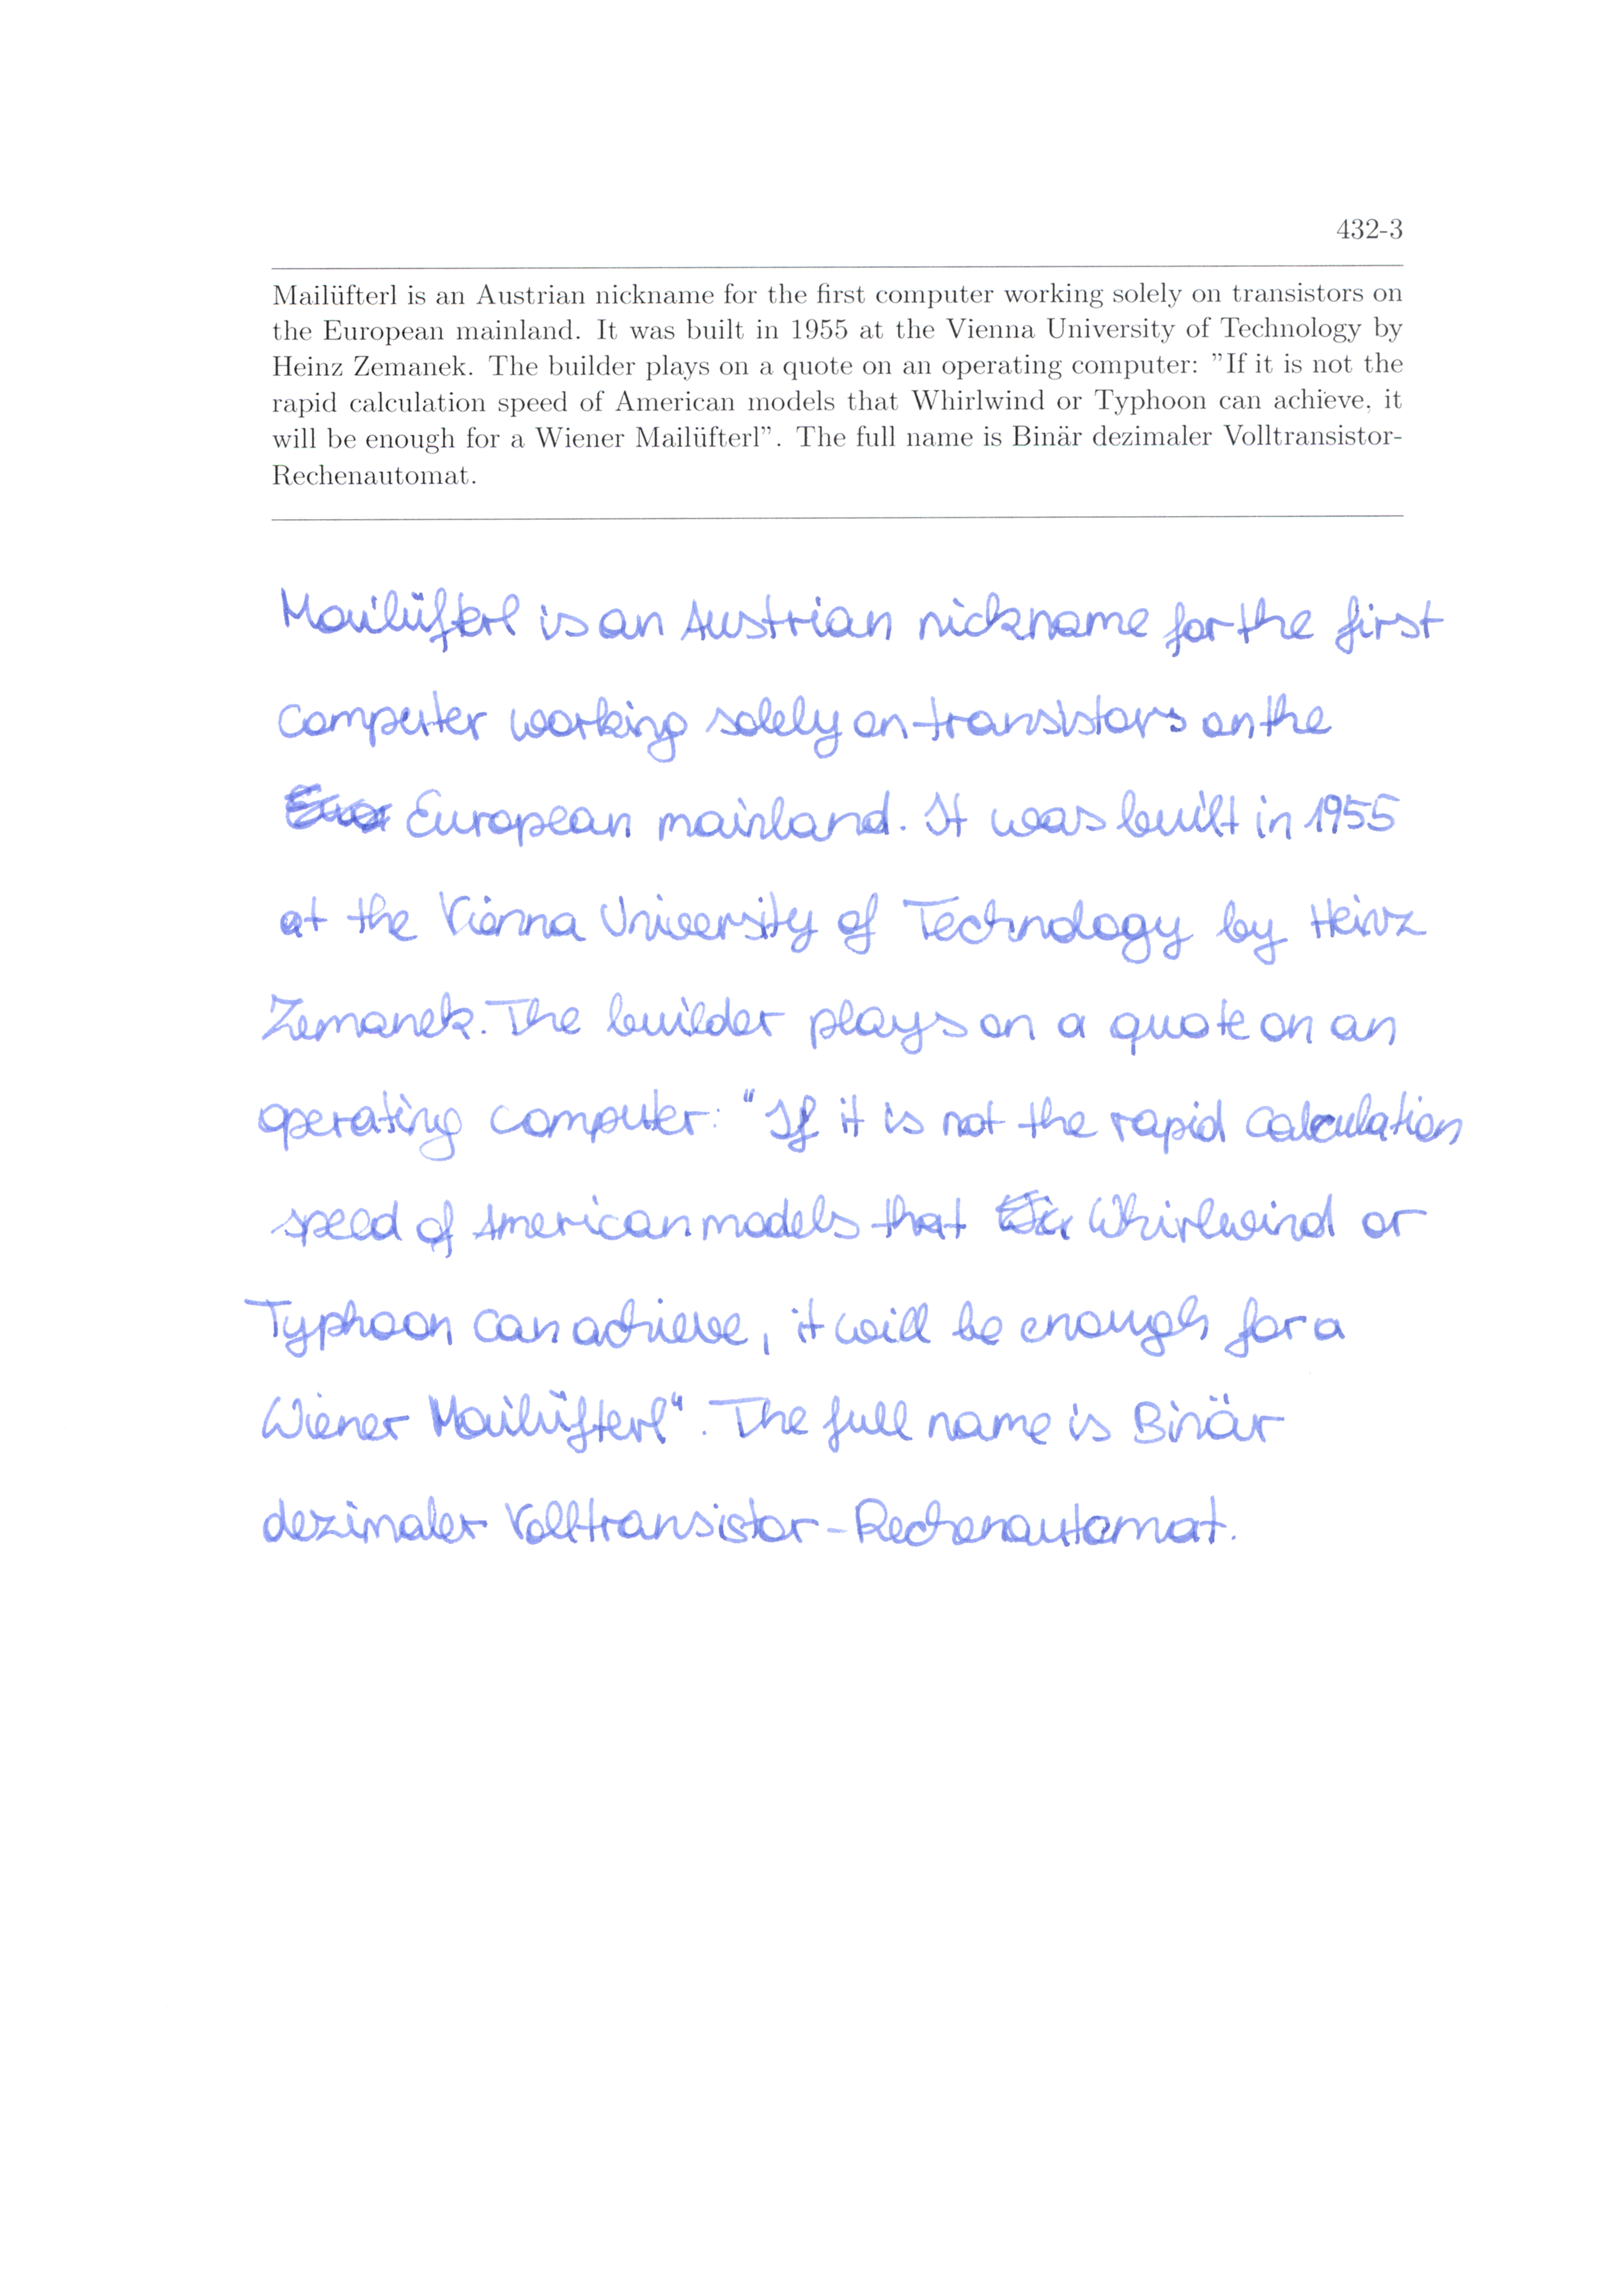 432-3
Mailüfterl is an Austrian nickname for the first computer working solely on transistors on
the European mainland. It was built in 1955 at the Vienna University of Technology by
Heinz Zemanek. The builder plays on a quote on an operating computer: ”If it is not the
rapid calculation speed of American models that Whirlwind or Typhoon can achieve, it
will be enough for a Wiener Mailüfterl”. The full name is Binär dezimaler Volltransistor-
Rechenautomat.
Mailüfterl is an Austrian nickname for the first
computer working solely on transistors on the
European mainland. It was built in 1955
at the Vienna University of Technology by Heinz
Zemanek. The builder plays on a quote on an
operating computer: “If it is not the rapid calculation
speed of American models that Whirlwind or
Typhoon can achieve, it will be enough for a
Wiener Mailüfterl“. The full name is Binär
dezimaler Volltransistor-Rechenautomat.